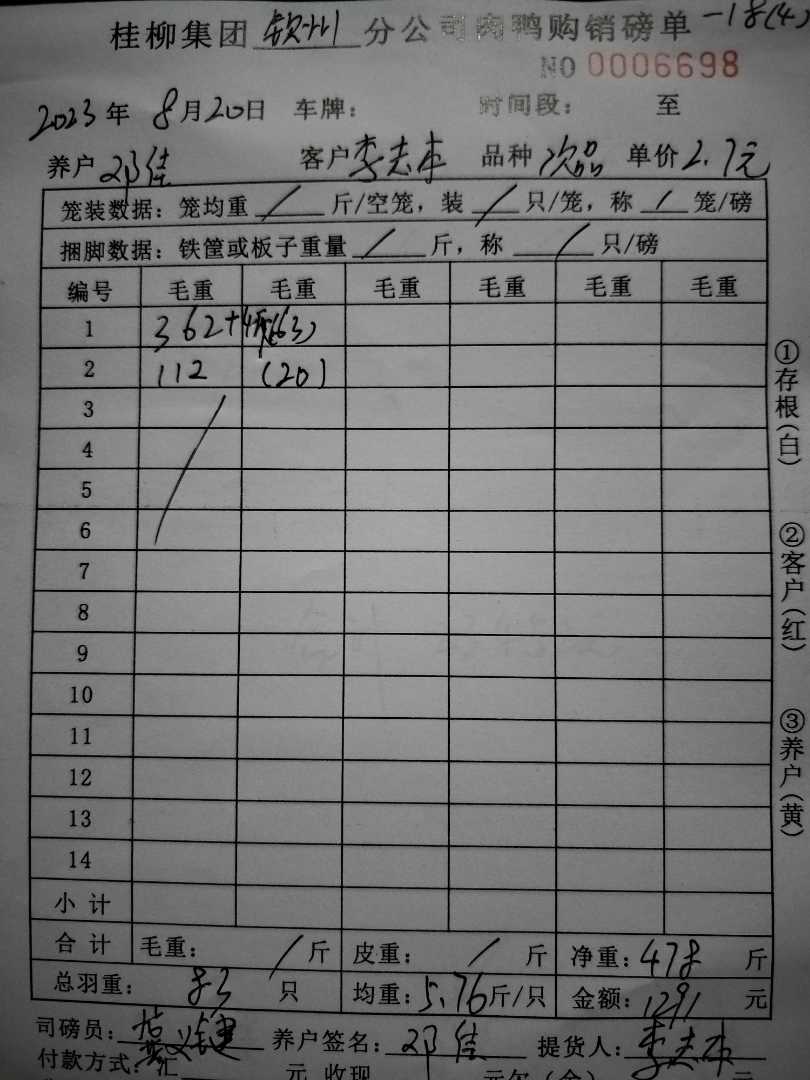 桂柳集团 钦州 分公司肉鸭购销磅单 -18(4)
NO 0006698
2023年 8月20日 车牌: 时间段: 至
养户 邓佳 客户 李志本 品种 次品 单价 2.7元
笼装数据: 笼均重 / 斤/空笼, 装 / 只/笼, 称 / 笼/磅
捆脚数据: 铁筐或板子重量 / 斤, 称 / 只/磅
编号 毛重 毛重 毛重 毛重 毛重 毛重
1 362+4 (63)
2 112 (20)
3
4
5
6
7
8
9
10
11
12
13
14
小计
合计 毛重: / 斤 皮重: / 斤 净重: 478 斤
总羽重: 83 只 均重: 5.76 斤/只 金额: 1291 元
司磅员: 养户签名: 邓佳 提货人: 李志本
付款方式: 汇 元 收现 元欠(余) 元
①存根(白)
②客户(红)
③养户(黄)